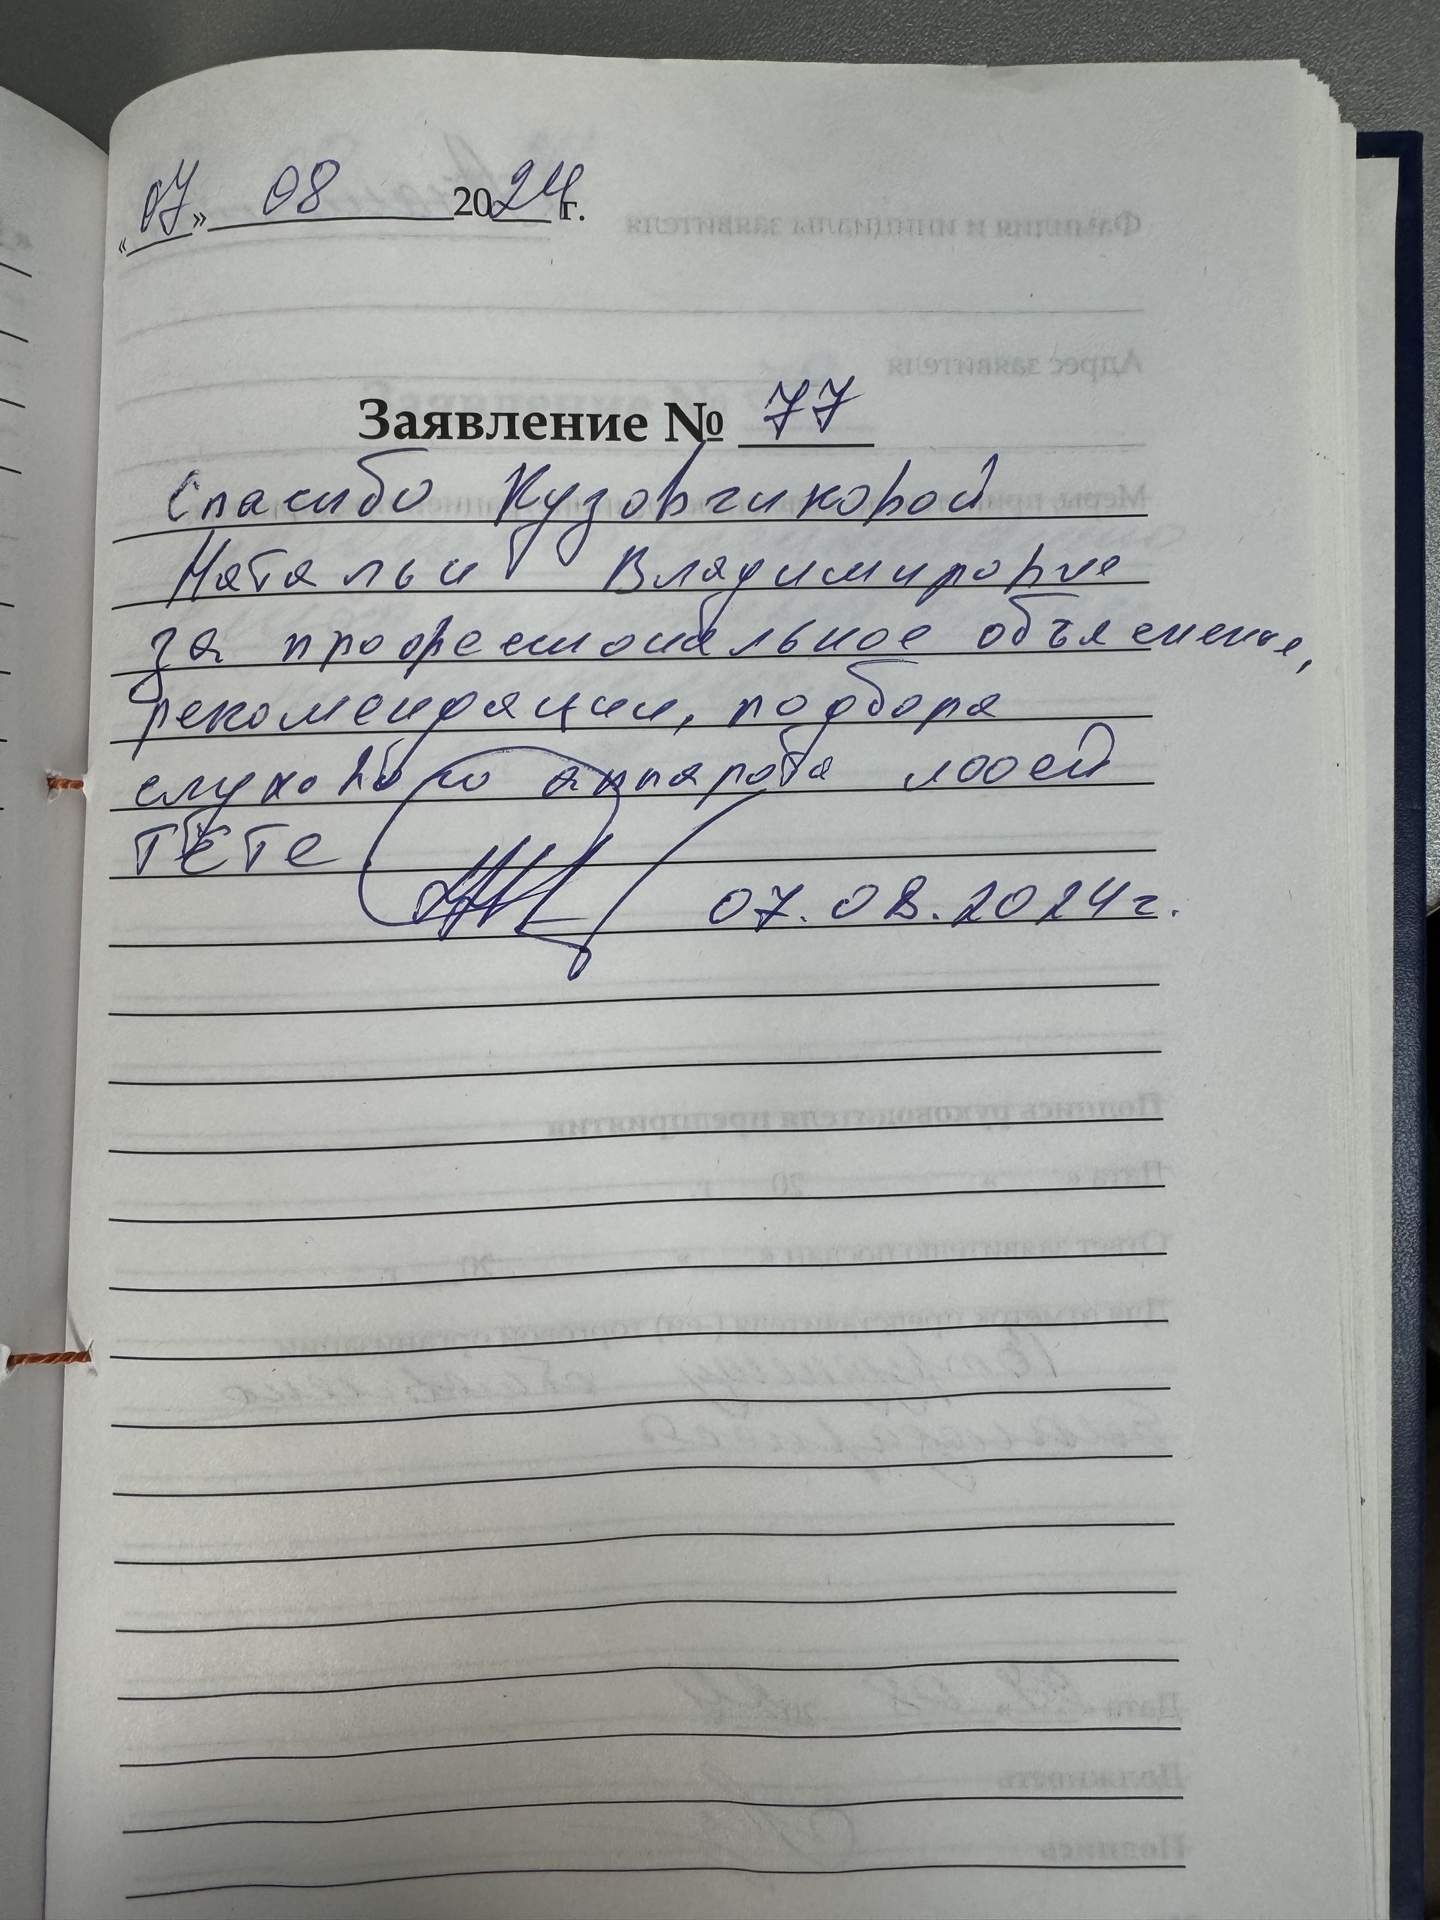 «07» 08 2024 г.
Заявление № 77
Спасибо Кузовчиковой
Натальи Владимировне
за профессиональное объяснение,
рекомендации, подбора
слухового аппарата моей
тёте
07.08.2024г.